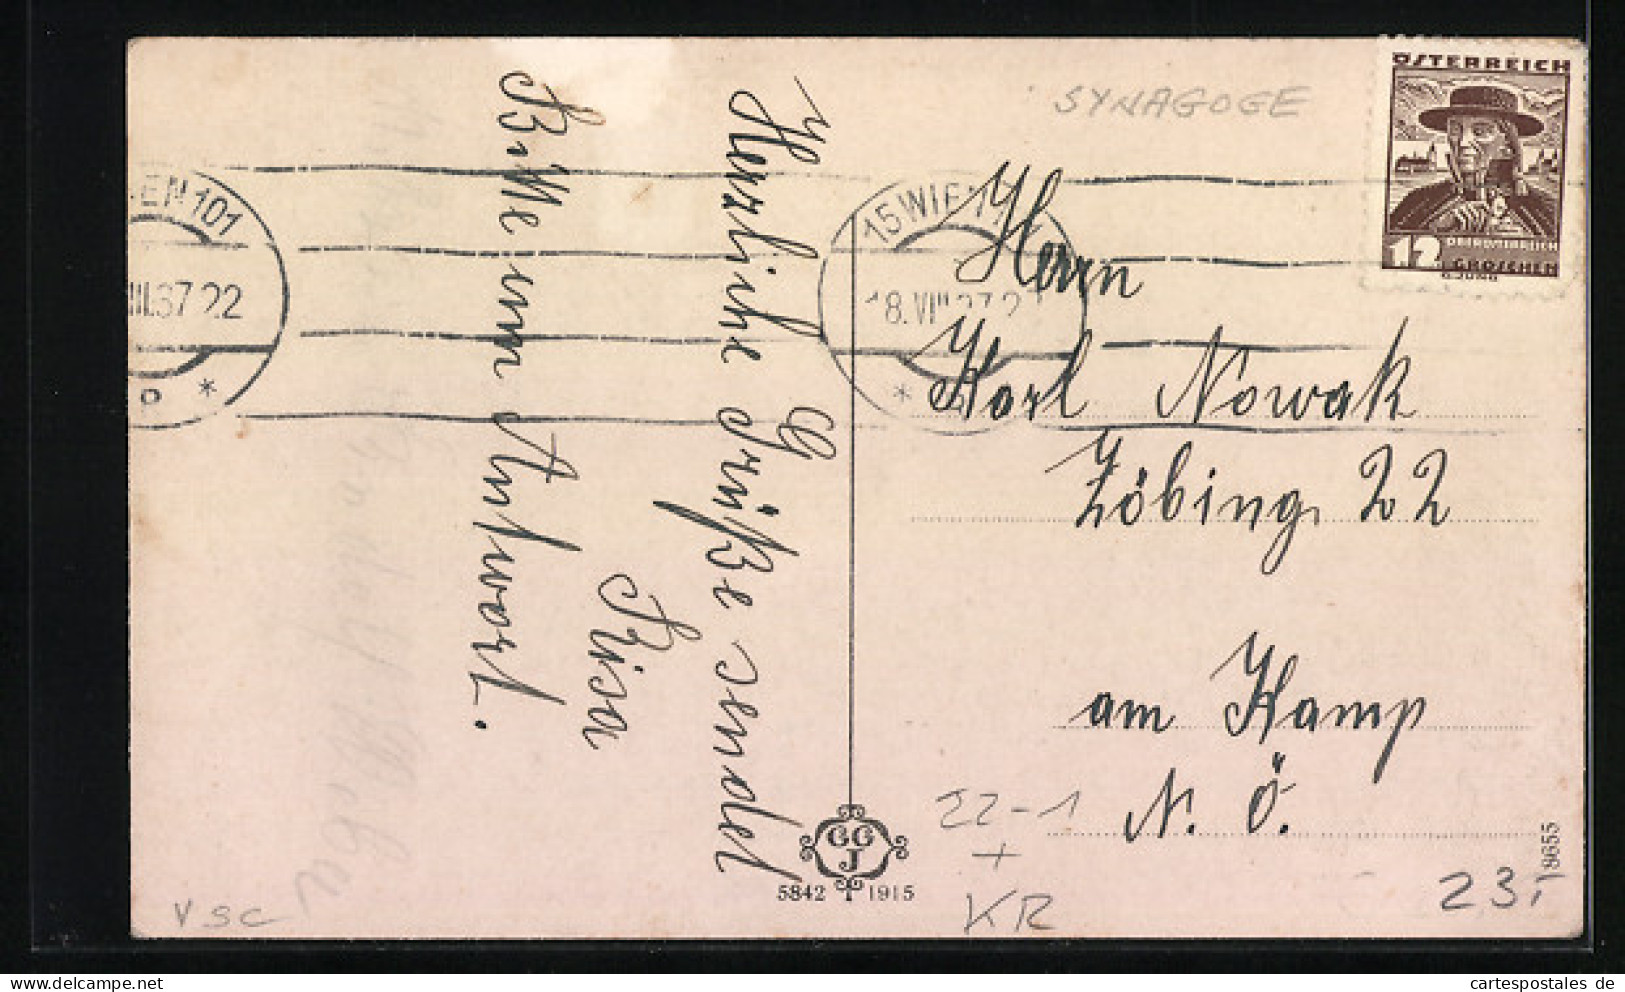 SYNAGOGE
ÖSTERREICH
12
OBERÖSTERREICH
GROSCHEN
G. JUNG
EN 101
III.37 22
15 WIEN 1
18. VIII.37 2
Herrn
Karl Nowak
Zöbing, 22
am Kamp
N. Ö.
Herzliche Grüße sendet
Risa
Bitte um Antwort.
GGJ
5842 1915
22-1
+
KR
23,-
8655
VSC
www.cartespostales.de